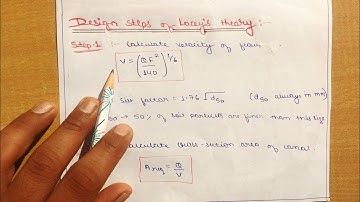 Design steps of Lacey's theory:-
Step-1 :- Calculate velocity of flow
V = (QF²/140)^1/6
= Silt factor = 1.76 √d50 (d50 always in mm)
50 → 50% of soil particles are finer than this size
Calculate cross-section area of canal
Areq = Q/V